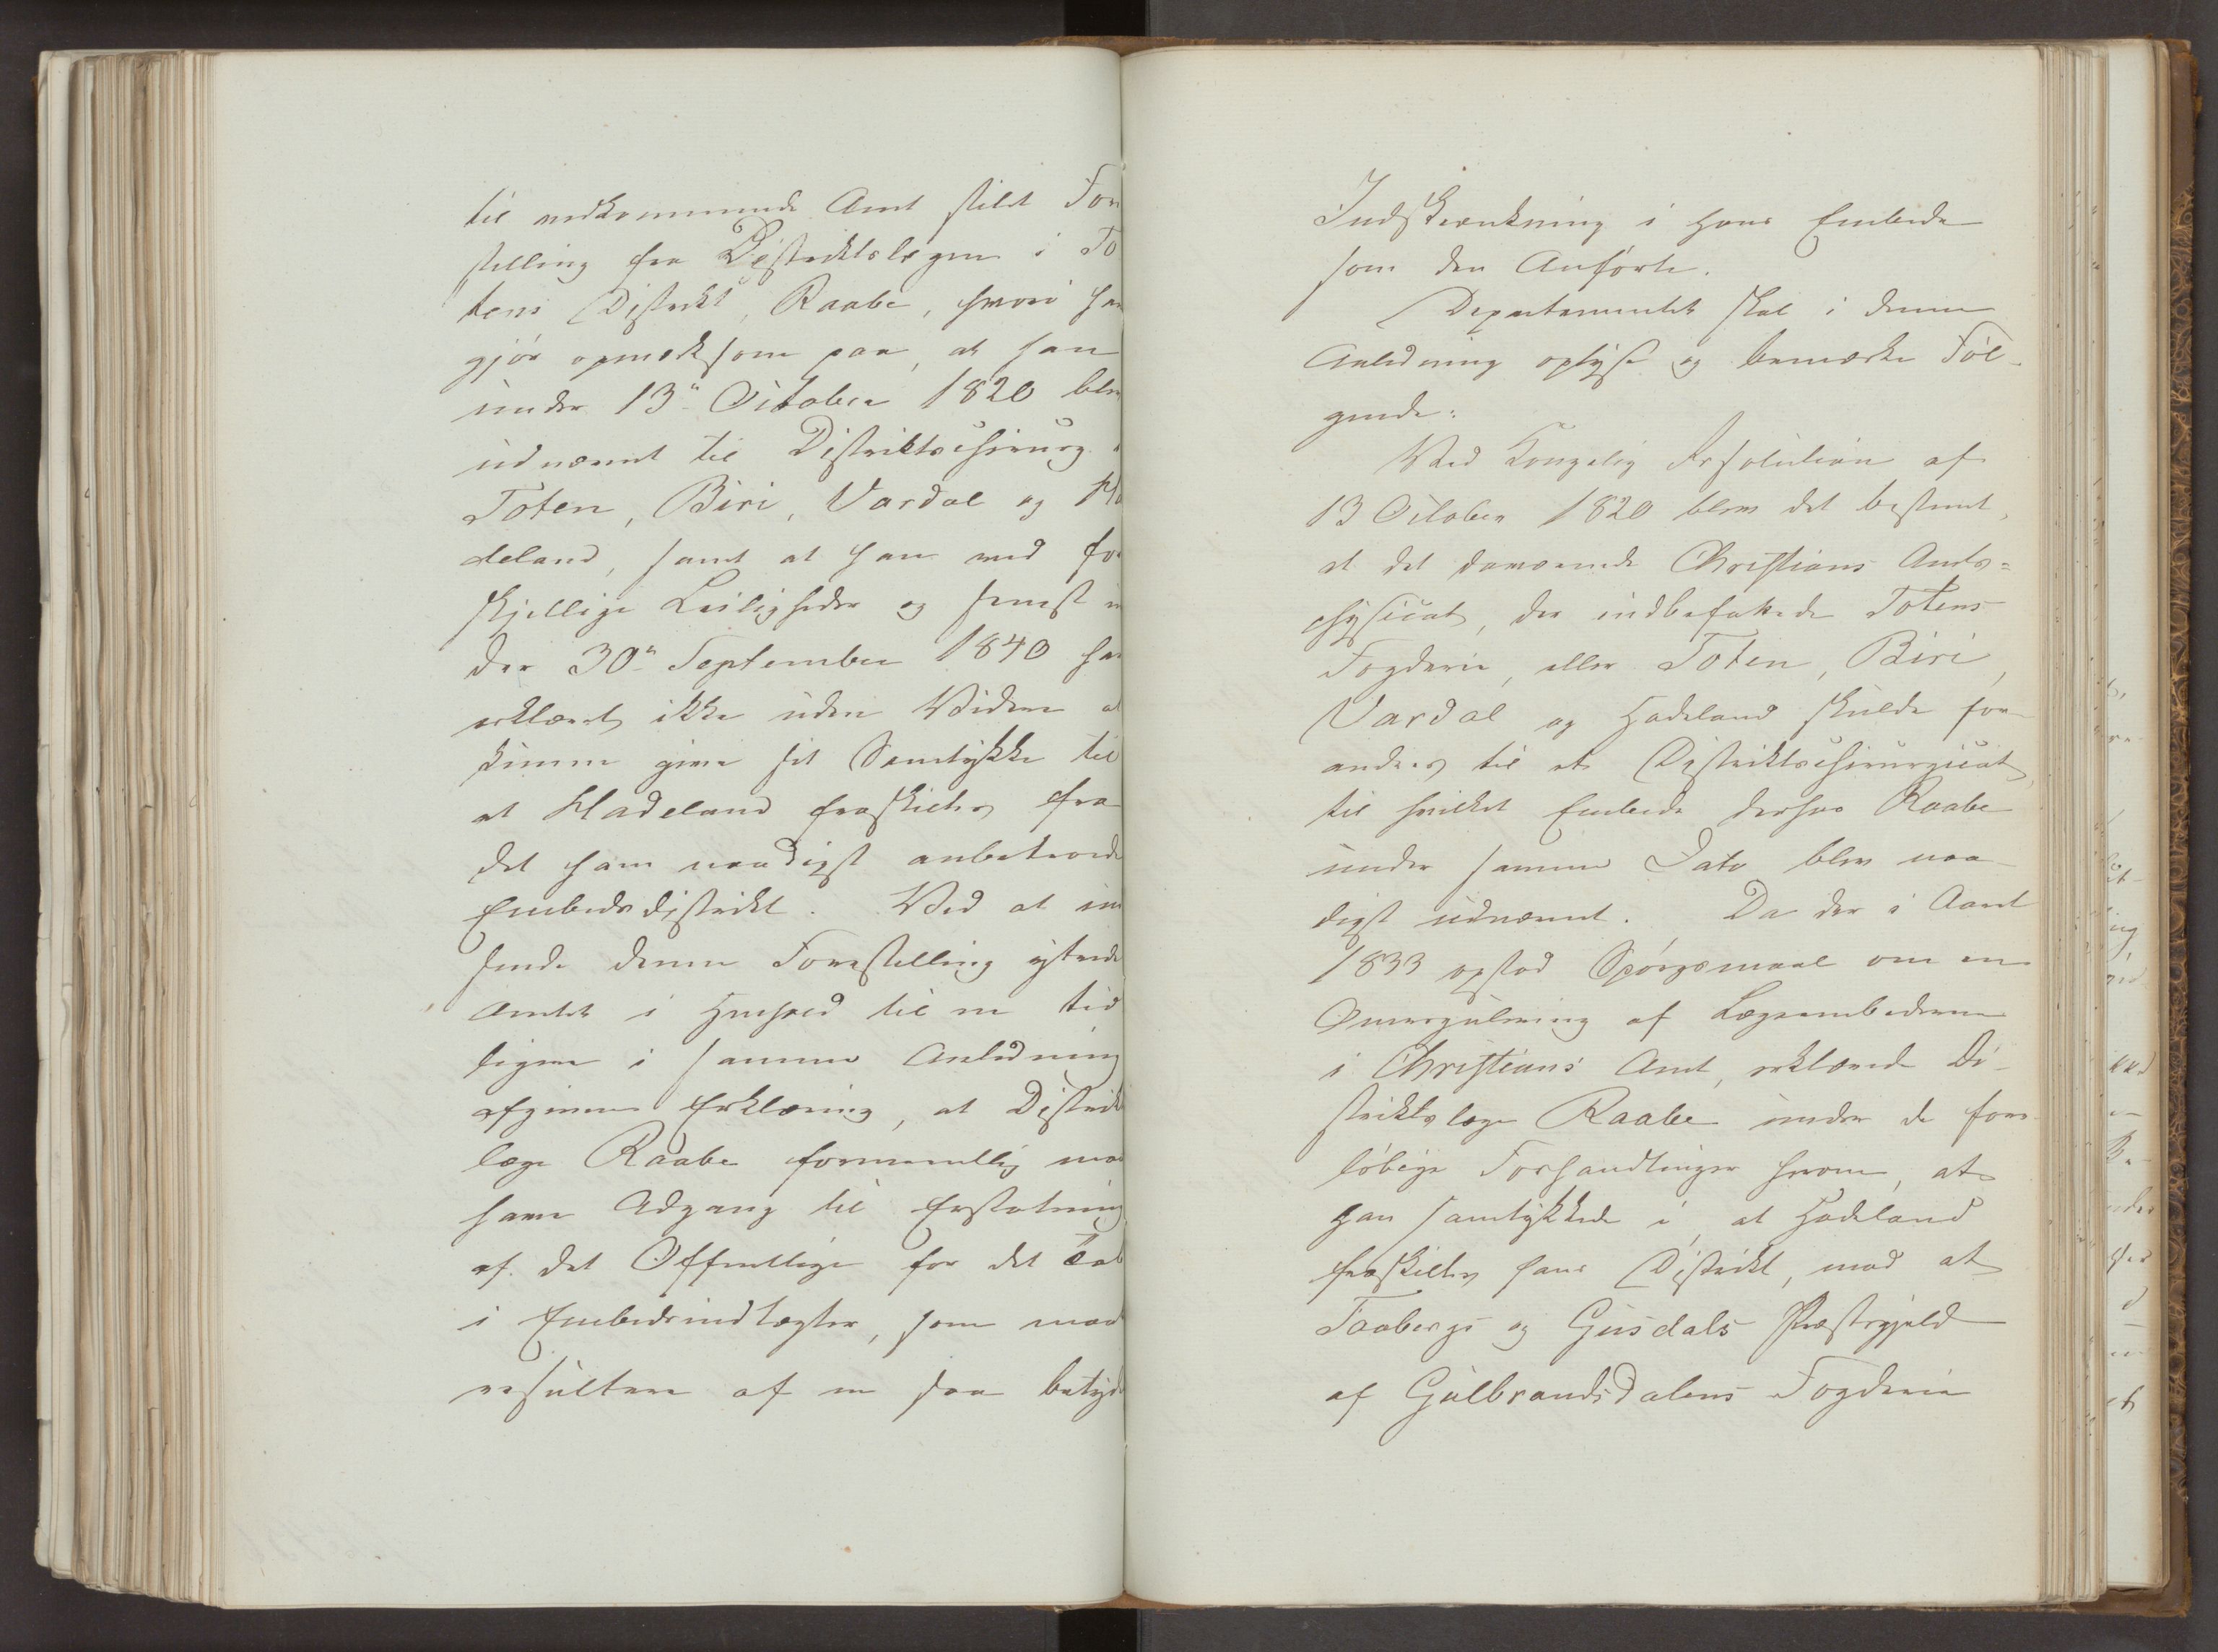 til vedkommende Amt stilet Fore
stilling fra Distriktslægen i To
tens Distrikt, Raabe, hvori han
gjør opmærksom paa, at han
under 13de October 1820 blev
udnævnt til Districtschirurg i
Toten, Biri, Vardal og Ha
deland, samt at han ved for
skjellige Leiligheder og senest un
der 30te September 1840 har
erklæret ikke uden Videre at
kunne give sit Samtykke til
at Hadeland fraskilles fra
det ham naadigst anbetroede
Embedsdistrikt. Ved at ind
sende denne Forestilling yttrede
Amtet i Henhold til en tid
ligere i samme Anledning
afgiven Erklæring, at Distrikts
læge Raabe formentlig maa
have Adgang til Erstatning
af det Offentlige for det Tab
i Embedsindtægter, som maa
resultere af en saa betyde
Indskrænkning i hans Embede
som den Anførte.
Departementet skal i denne
Anledning oplyse og bemærke Føl-
gende:
Ved Kongelig Resolution af
13 October 1820 blev det bestemt,
at det daværende Christians Amts=
physicat, der indbefattede Totens
Fogderie, eller Toten, Biri,
Vardal og Hadeland skulde for-
andres til et Distriktschirurgicat,
til hvilket Embede derhos Raabe
under samme Dato blev naa-
digst udnævnt. Da der i Aaret
1833 opstod Spørgsmaal om en
Omregulering af Lægeembederne
i Christians Amt, erklærede Di-
striktslæge Raabe under de fore-
løbige Forhandlinger herom, at
han samtykkede i, at Hadeland
fraskiltes hans Distrikt, mod at
Faabergs og Gusdals Præstegjeld
af Gulbrandsdalens Fogderie